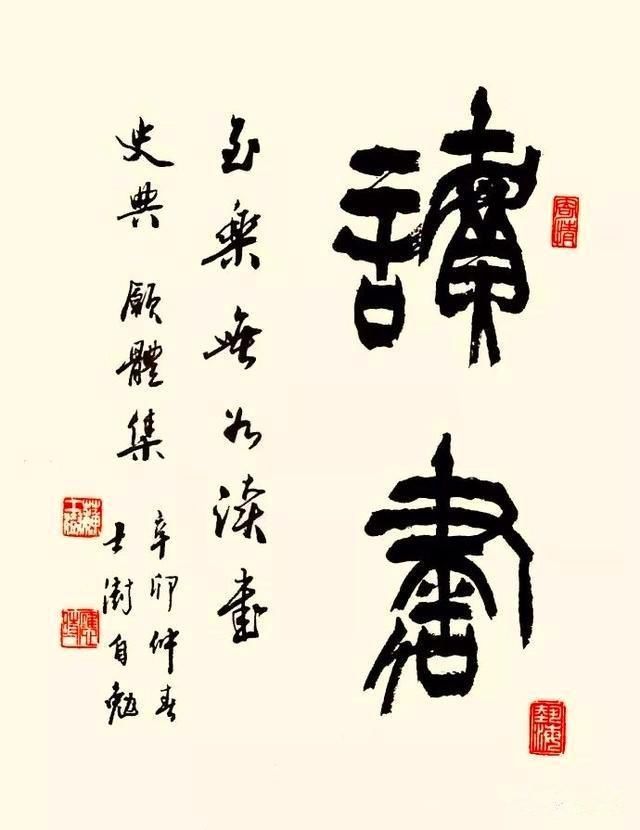 讀書
至樂無如讀書
史典願體集
辛卯仲春
士澍自勉